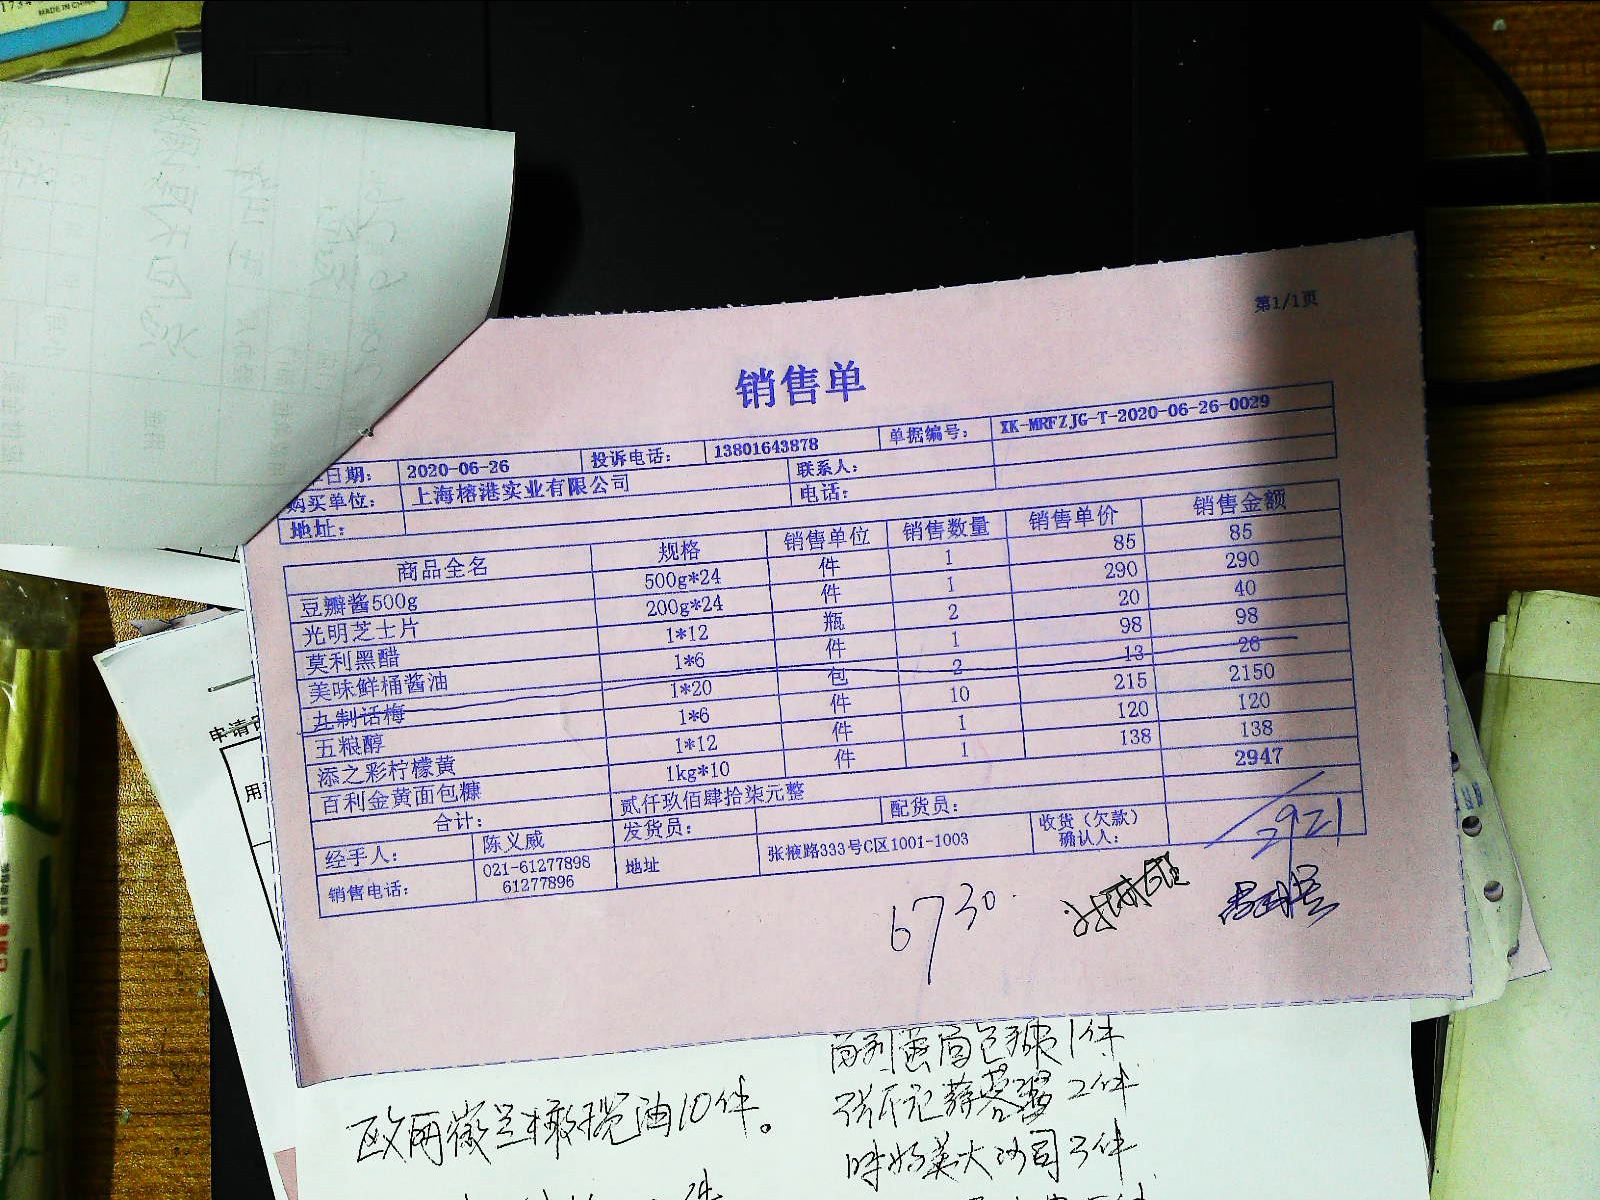 1734 MADE IN CHINA
第1/1页
销售单
日期: 2020-06-26 投诉电话: 13801643878 单据编号: XK-MRFZJG-T-2020-06-26-0029
购买单位: 上海榕港实业有限公司 联系人:
地址: 电话:
商品全名 规格 销售单位 销售数量 销售单价 销售金额
豆瓣酱500g 500g*24 件 1 85 85
光明芝士片 200g*24 件 1 290 290
莫利黑醋 1*12 瓶 2 20 40
美味鲜桶酱油 1*6 件 1 98 98
九制话梅 1*20 包 2 13 26
五粮醇 1*6 件 10 215 2150
添之彩柠檬黄 1*12 件 1 120 120
百利金黄面包糠 1kg*10 件 1 138 138
合计: 贰仟玖佰肆拾柒元整 2947
经手人: 陈义威 发货员: 配货员: 收货(欠款)确认人: 2921
销售电话: 021-61277898 61277896 地址 张掖路333号C区1001-1003
6730.
申请
用
欧丽薇兰橄榄油10件。
百利蛋面包糠1件
2件
味好美大沙司3件